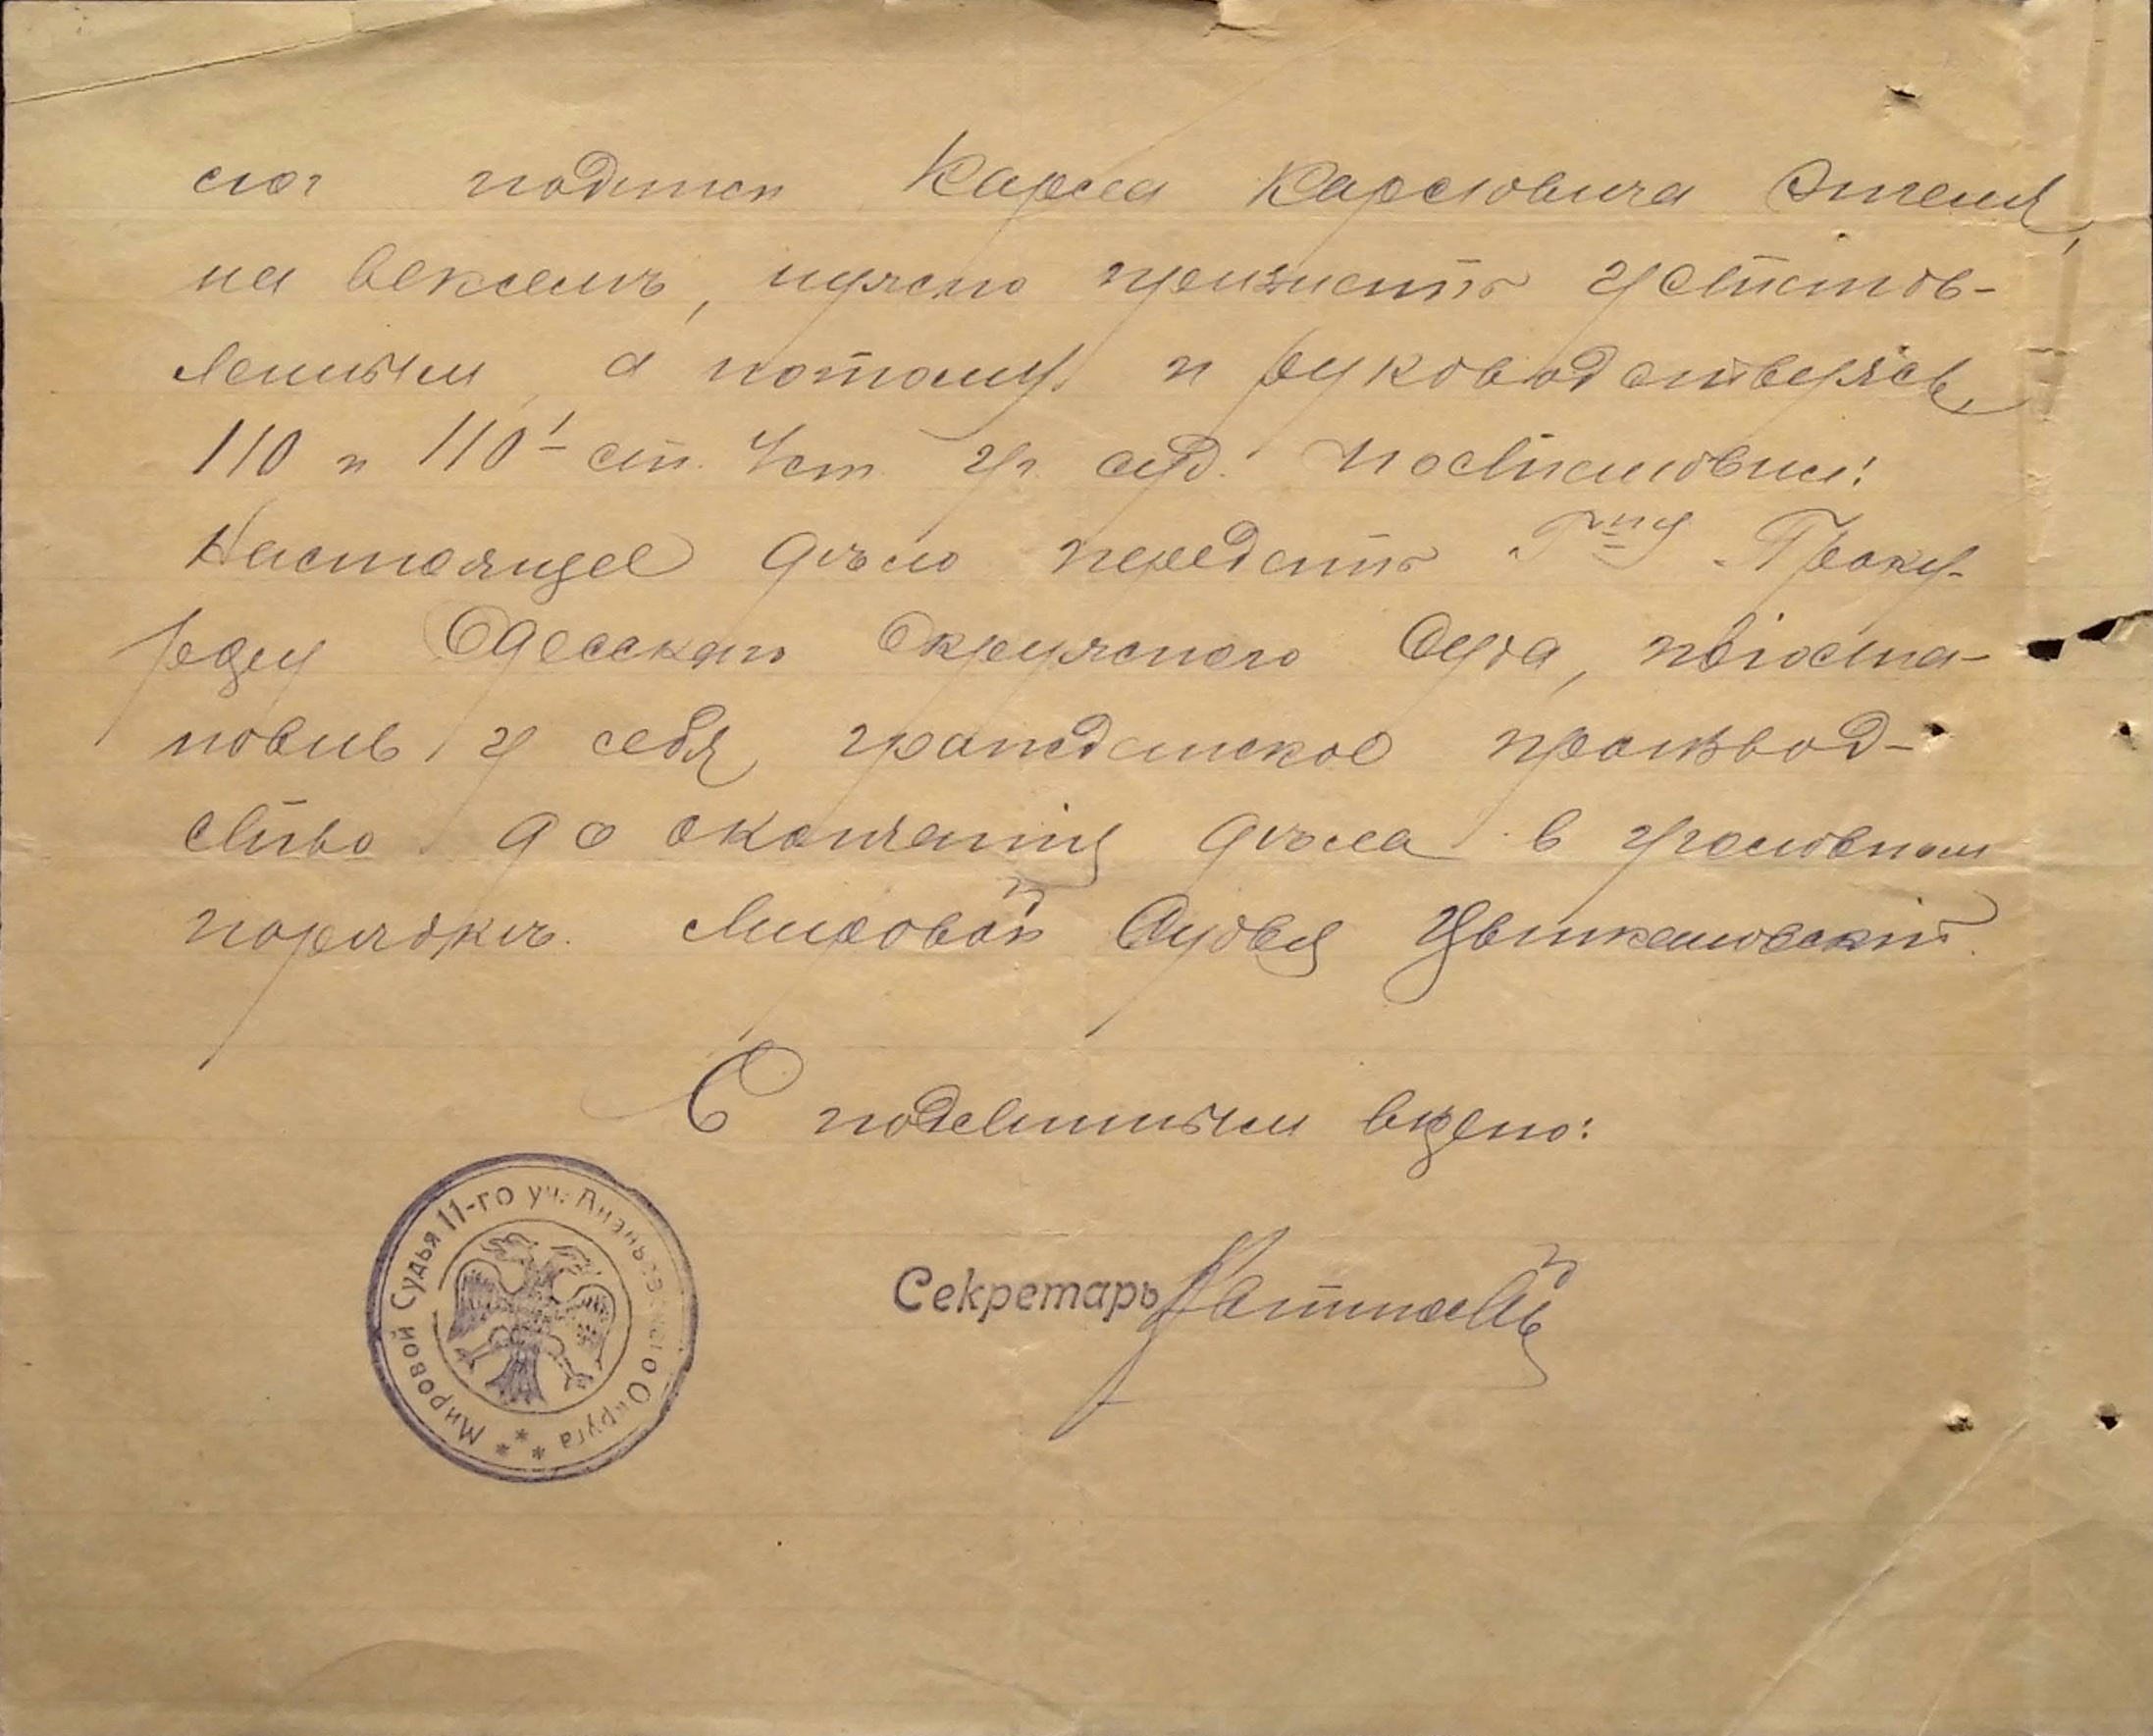 сюг подписи Карла Карловича Энгеля,
на векселѣ, нужно признать установ-
леннымъ, а потому и руководствуясь
110 и 110¹ ст. Уст. гр. суд. постановил:
Настоящее дѣло передать Г-ну Проку-
рору Одесскаго Окружного Суда, пріоста-
новив у себя гражданское производ-
ство до окончанія дѣла в уголовном
порядкѣ. Мировой Судья Цвинкаловский.
С подлинным вѣрно:
Мировой Судья 11-го уч. Ананьевскаго Округа
Секретарь